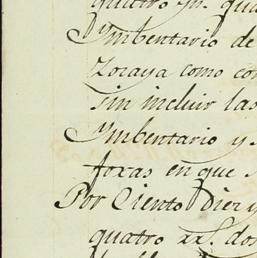 quatro
Ymbentario de
Zoraya como con
sin incluir las
Ymbentario y
foxas en que
Por Ciento Diez y
quatro rr.s dos